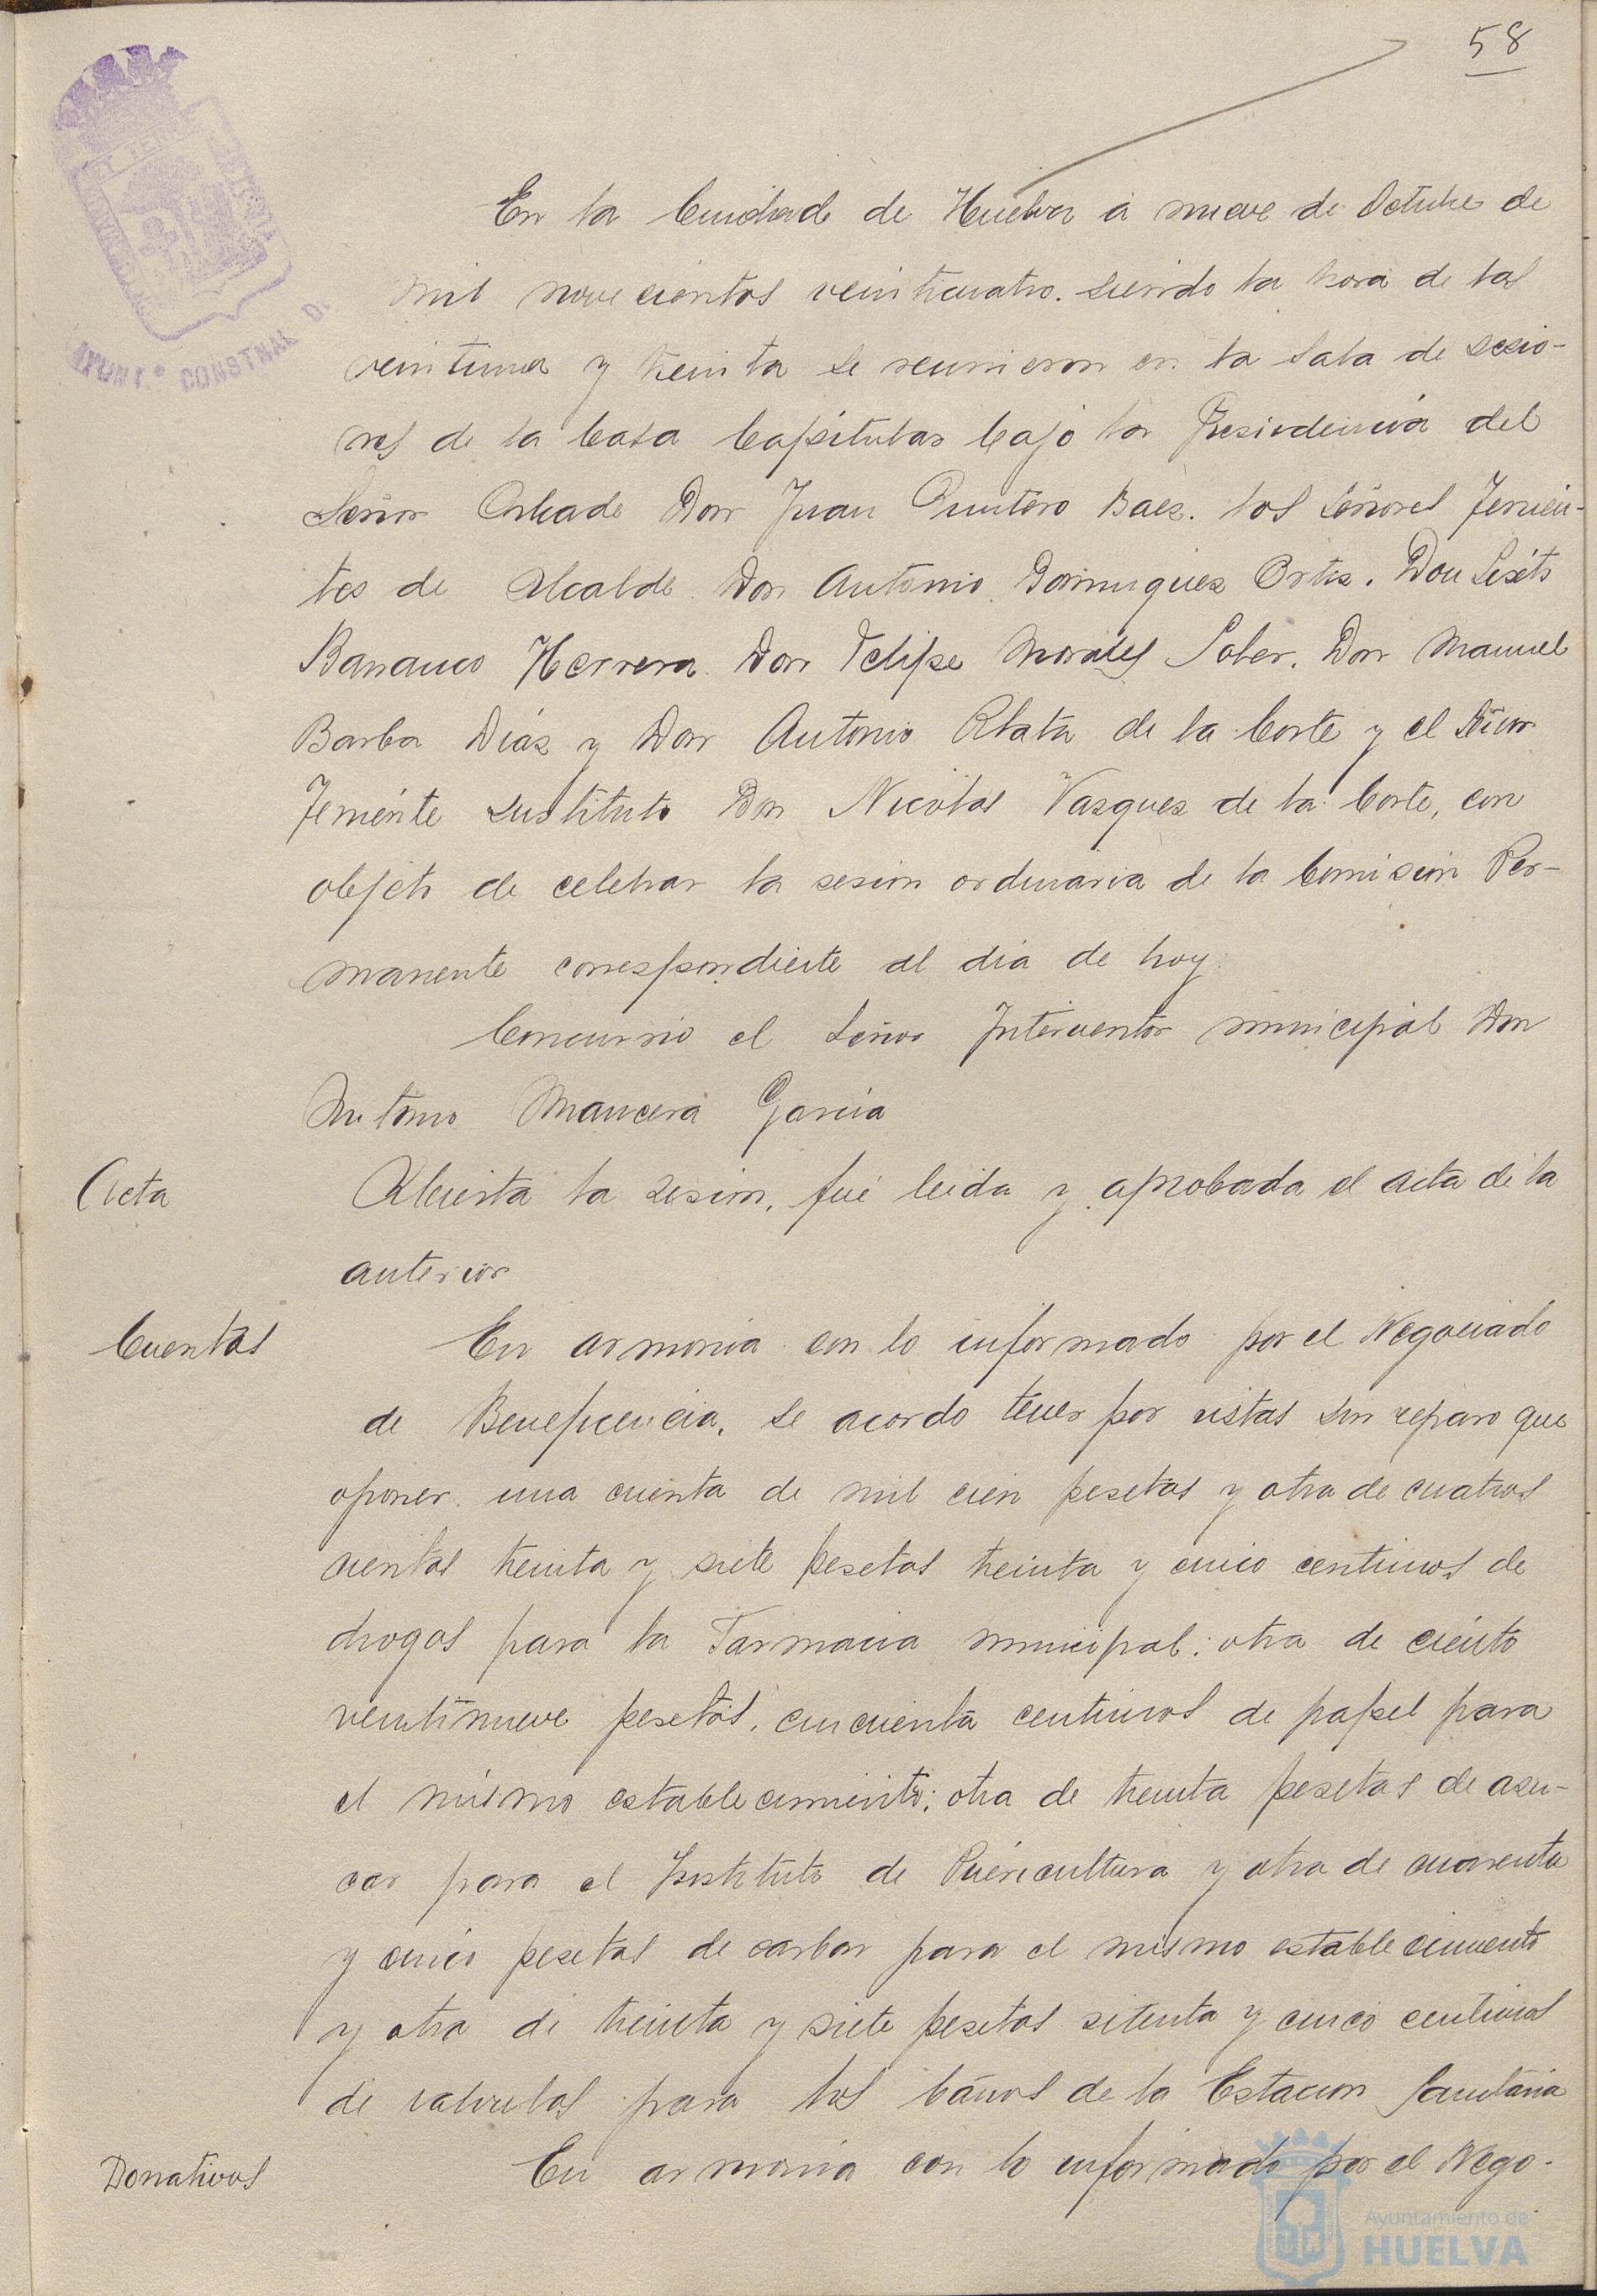 58
En la Ciudad de Huelva á nueve de Octubre de
mil novecientos veinticuatro. siendo la hora de las
veintiuna y treinta se reunieron en la Sala de sesio-
nes de la Casa Capitular bajo la Presidencia del
Señor Alcalde Don Juan Quintero Baez. los señores Tenien-
tes de Alcalde Don Antonio Dominguez Ortiz. Don Sixto
Barranco Herrera. Don Felipe Morales Soler. Don Manuel
Barba Diáz y Don Antonio Plata de la Corte y el Señor
Teniente sustituto Don Nicolas Vazquez de la Corte, con
objeto de celebrar la sesion ordinaria de la Comision Per-
manente correspondiente al dia de hoy.
Concurrio el Señor Interventor municipal Don
Antonio Mancera Garcia
Acta
Abierta la sesion, fué leida y aprobada el acta de la
anterior
Cuentas
En armonia con lo informado por el Negociado
de Beneficencia, se acordo tener por vistas sin reparo que
oponer. una cuenta de mil cien pesetas y otra de cuatros
cientas treinta y siete pesetas treinta y cinco centimos de
drogas para la Farmacia municipal: otra de ciento
veintinueve pesetas, cincuenta centimos de papel para
el mismo establecimiento: otra de treinta pesetas de azu-
car para el Instituto de Puericultura y otra de cuarenta
y cinco pesetas de carbon para el mismo establecimiento
y otra de treinta y siete pesetas setenta y cinco centimos
de valvulas para los baños de la Estacion Sanitaria
Donativos
En armonia con lo informado por el Nego-
AYUNT.º CONSTNAL D
Ayuntamiento de
HUELVA